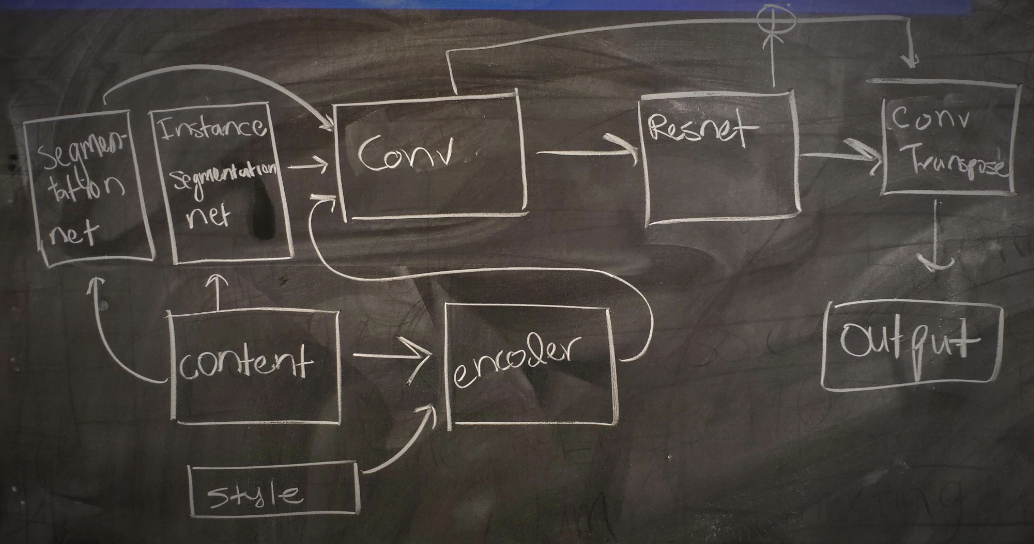 Segmen-
tation
net
Instance
Segmentation
net
Conv
Resnet
Conv
Transpose
content
encoder
output
style